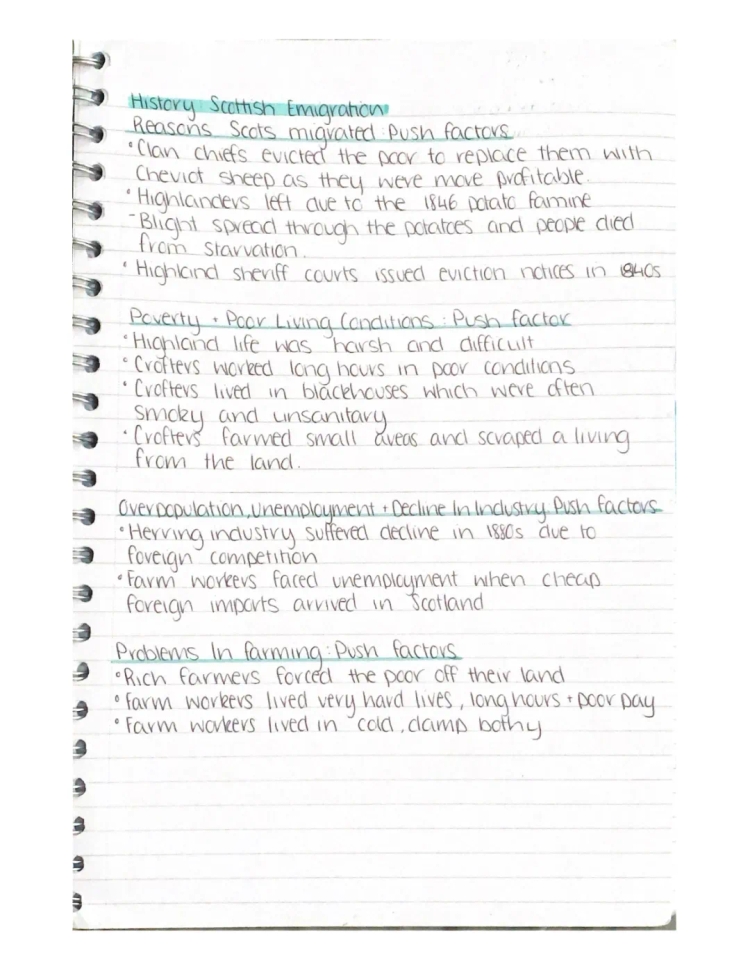 History: Scottish Emigration
Reasons Scots migrated: Push factors
• Clan chiefs evicted the poor to replace them with
Cheviot sheep as they were more profitable.
• Highlanders left due to the 1846 potato famine
- Blight spread through the potatoes and people died
from starvation.
• Highland sheriff courts issued eviction notices in 1840s
Poverty + Poor Living Conditions: Push factor
• Highland life was harsh and difficult
• Crofters worked long hours in poor conditions
• Crofters lived in blackhouses which were often
smoky and unsanitary
• Crofters farmed small areas and scraped a living
from the land.
Overpopulation, Unemployment + Decline In Industry: Push factors
• Herring industry suffered decline in 1880s due to
foreign competition
• Farm workers faced unemployment when cheap
foreign imports arrived in Scotland
Problems In farming: Push factors
• Rich farmers forced the poor off their land
• farm workers lived very hard lives, long hours + poor pay
• Farm workers lived in cold, damp bothy